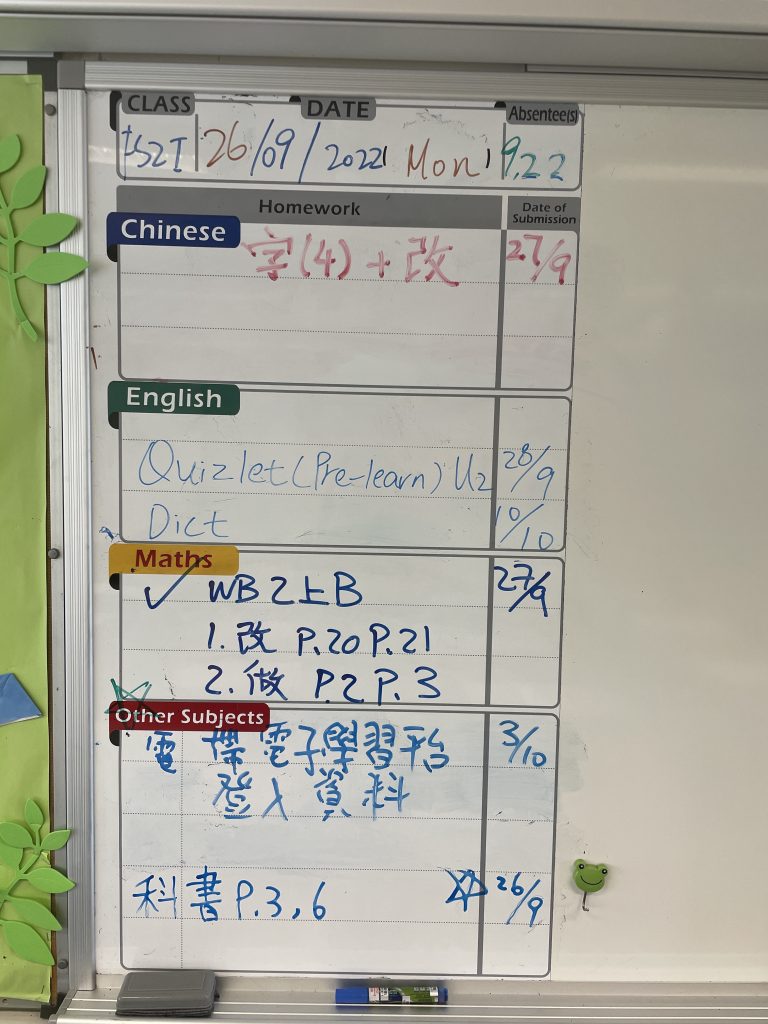 CLASS DATE Absentee(s)
26/09/2022 Mon 9,22
Homework Date of Submission
Chinese
字(4) + 改 27/9
English
Quizlet (Pre-learn) U2 28/9
Dict 10/10
Maths
✓ WB 2上B 27/9
1. 改 P.20 P.21
2. 做 P.2 P.3
Other Subjects
電 帶電子學習平台 3/10
登入資料
科書 P.3,6 26/9